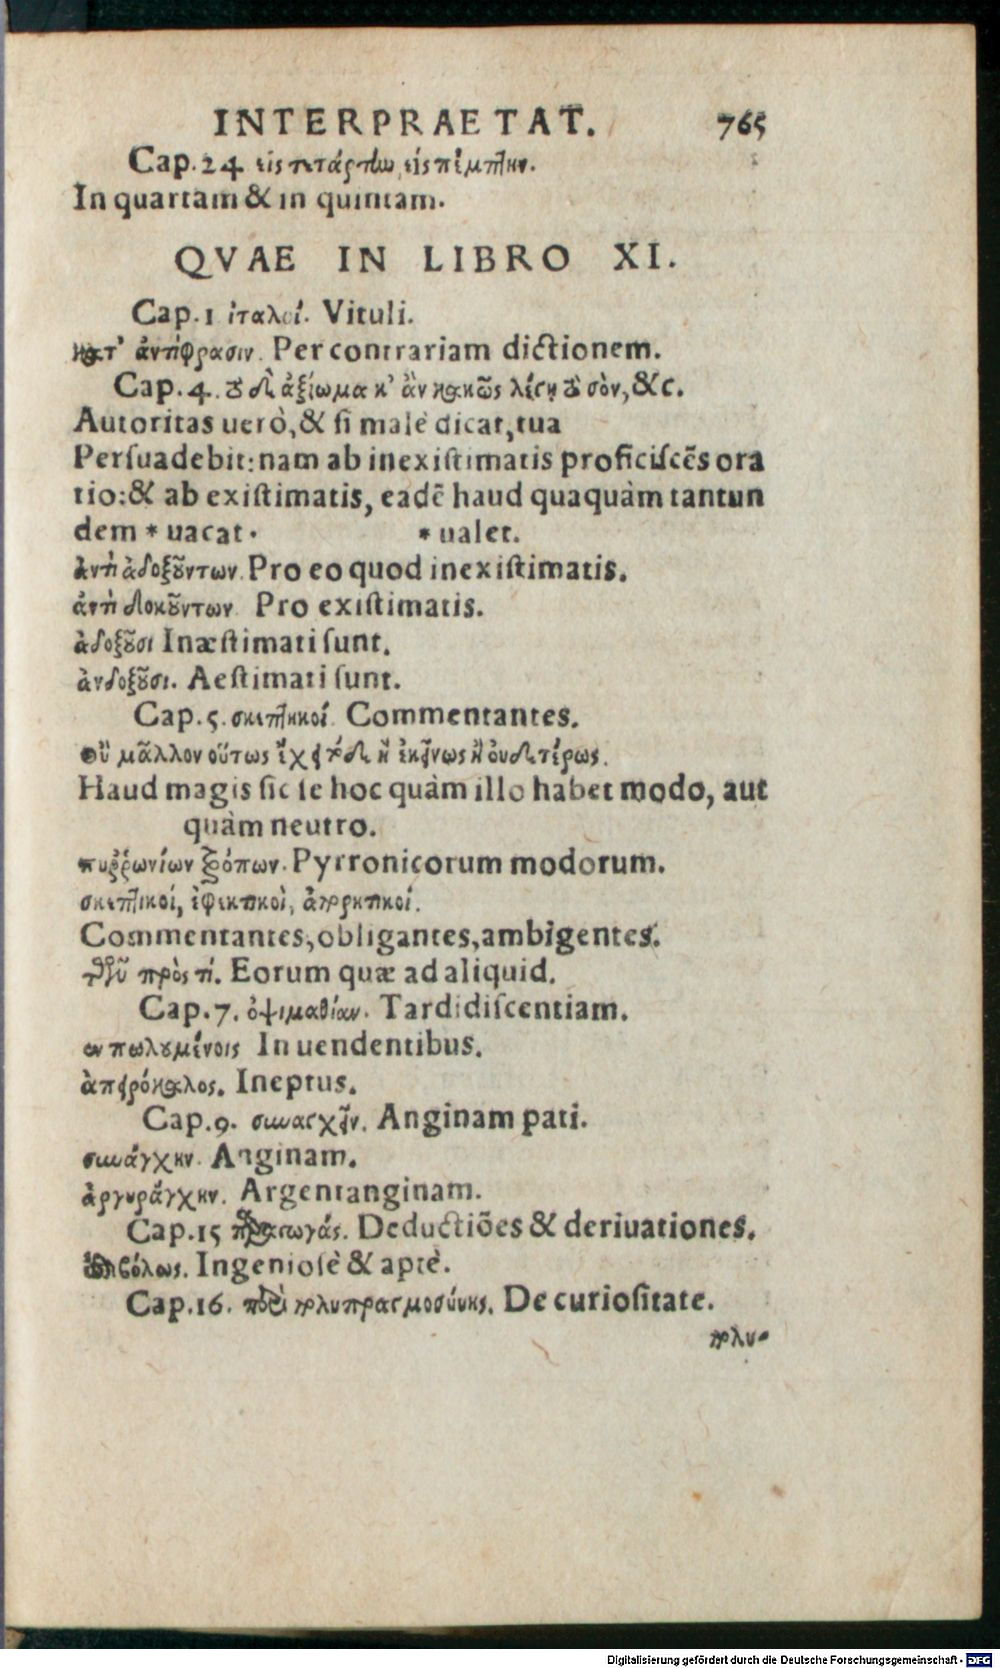 INTERPRAETAT. 765
Cap.24 εἰς τετάρτην, εἰς πέμπτην.
In quartam & in quintam.
QVAE IN LIBRO XI.
Cap.1 ἰταλοί. Vituli.
κατ' ἀντίφρασιν. Per contrariam dictionem.
Cap.4. τὸ δὲ ἀξίωμα κ' ἂν κακῶς λέγῃ τὸ σὸν, &c.
Autoritas uerò, & si malè dicat, tua
Persuadebit: nam ab inexistimatis proficiscẽs ora
tio: & ab existimatis, eadẽ haud quaquàm tantun
dem * uacat. * ualet.
ἀντὶ ἀδοξούντων. Pro eo quod inexistimatis.
ἀντὶ δοκούντων. Pro existimatis.
ἀδοξοῦσι Inæstimati sunt.
ἐνδοξοῦσι. Aestimati sunt.
Cap.5. σκεπτικοί. Commentantes.
οὐ μᾶλλον οὕτως ἔχει τόδε ἢ ἐκείνως ἢ οὐδετέρως.
Haud magis sic se hoc quàm illo habet modo, aut
quàm neutro.
πυῤῥωνίων τρόπων. Pyrronicorum modorum.
σκεπτικοί, ἐφεκτικοὶ, ἀπορητικοί.
Commentantes, obligantes, ambigentes.
τῶν πρὸς τί. Eorum quæ ad aliquid.
Cap.7. ὀψιμαθίαν. Tardidiscentiam.
ἐν πωλουμένοις In uendentibus.
ἀπειρόκαλος. Ineptus.
Cap.9. συναγχεῖν. Anginam pati.
συνάγχην. Anginam.
ἀργυράγχην. Argentanginam.
Cap.15 παραγωγάς. Deductiões & deriuationes.
ἐπηβόλως. Ingeniosè & aptè.
Cap.16. περὶ πολυπραγμοσύνης. De curiositate.
πολυ-
Digitalisierung gefördert durch die Deutsche Forschungsgemeinschaft - DFG